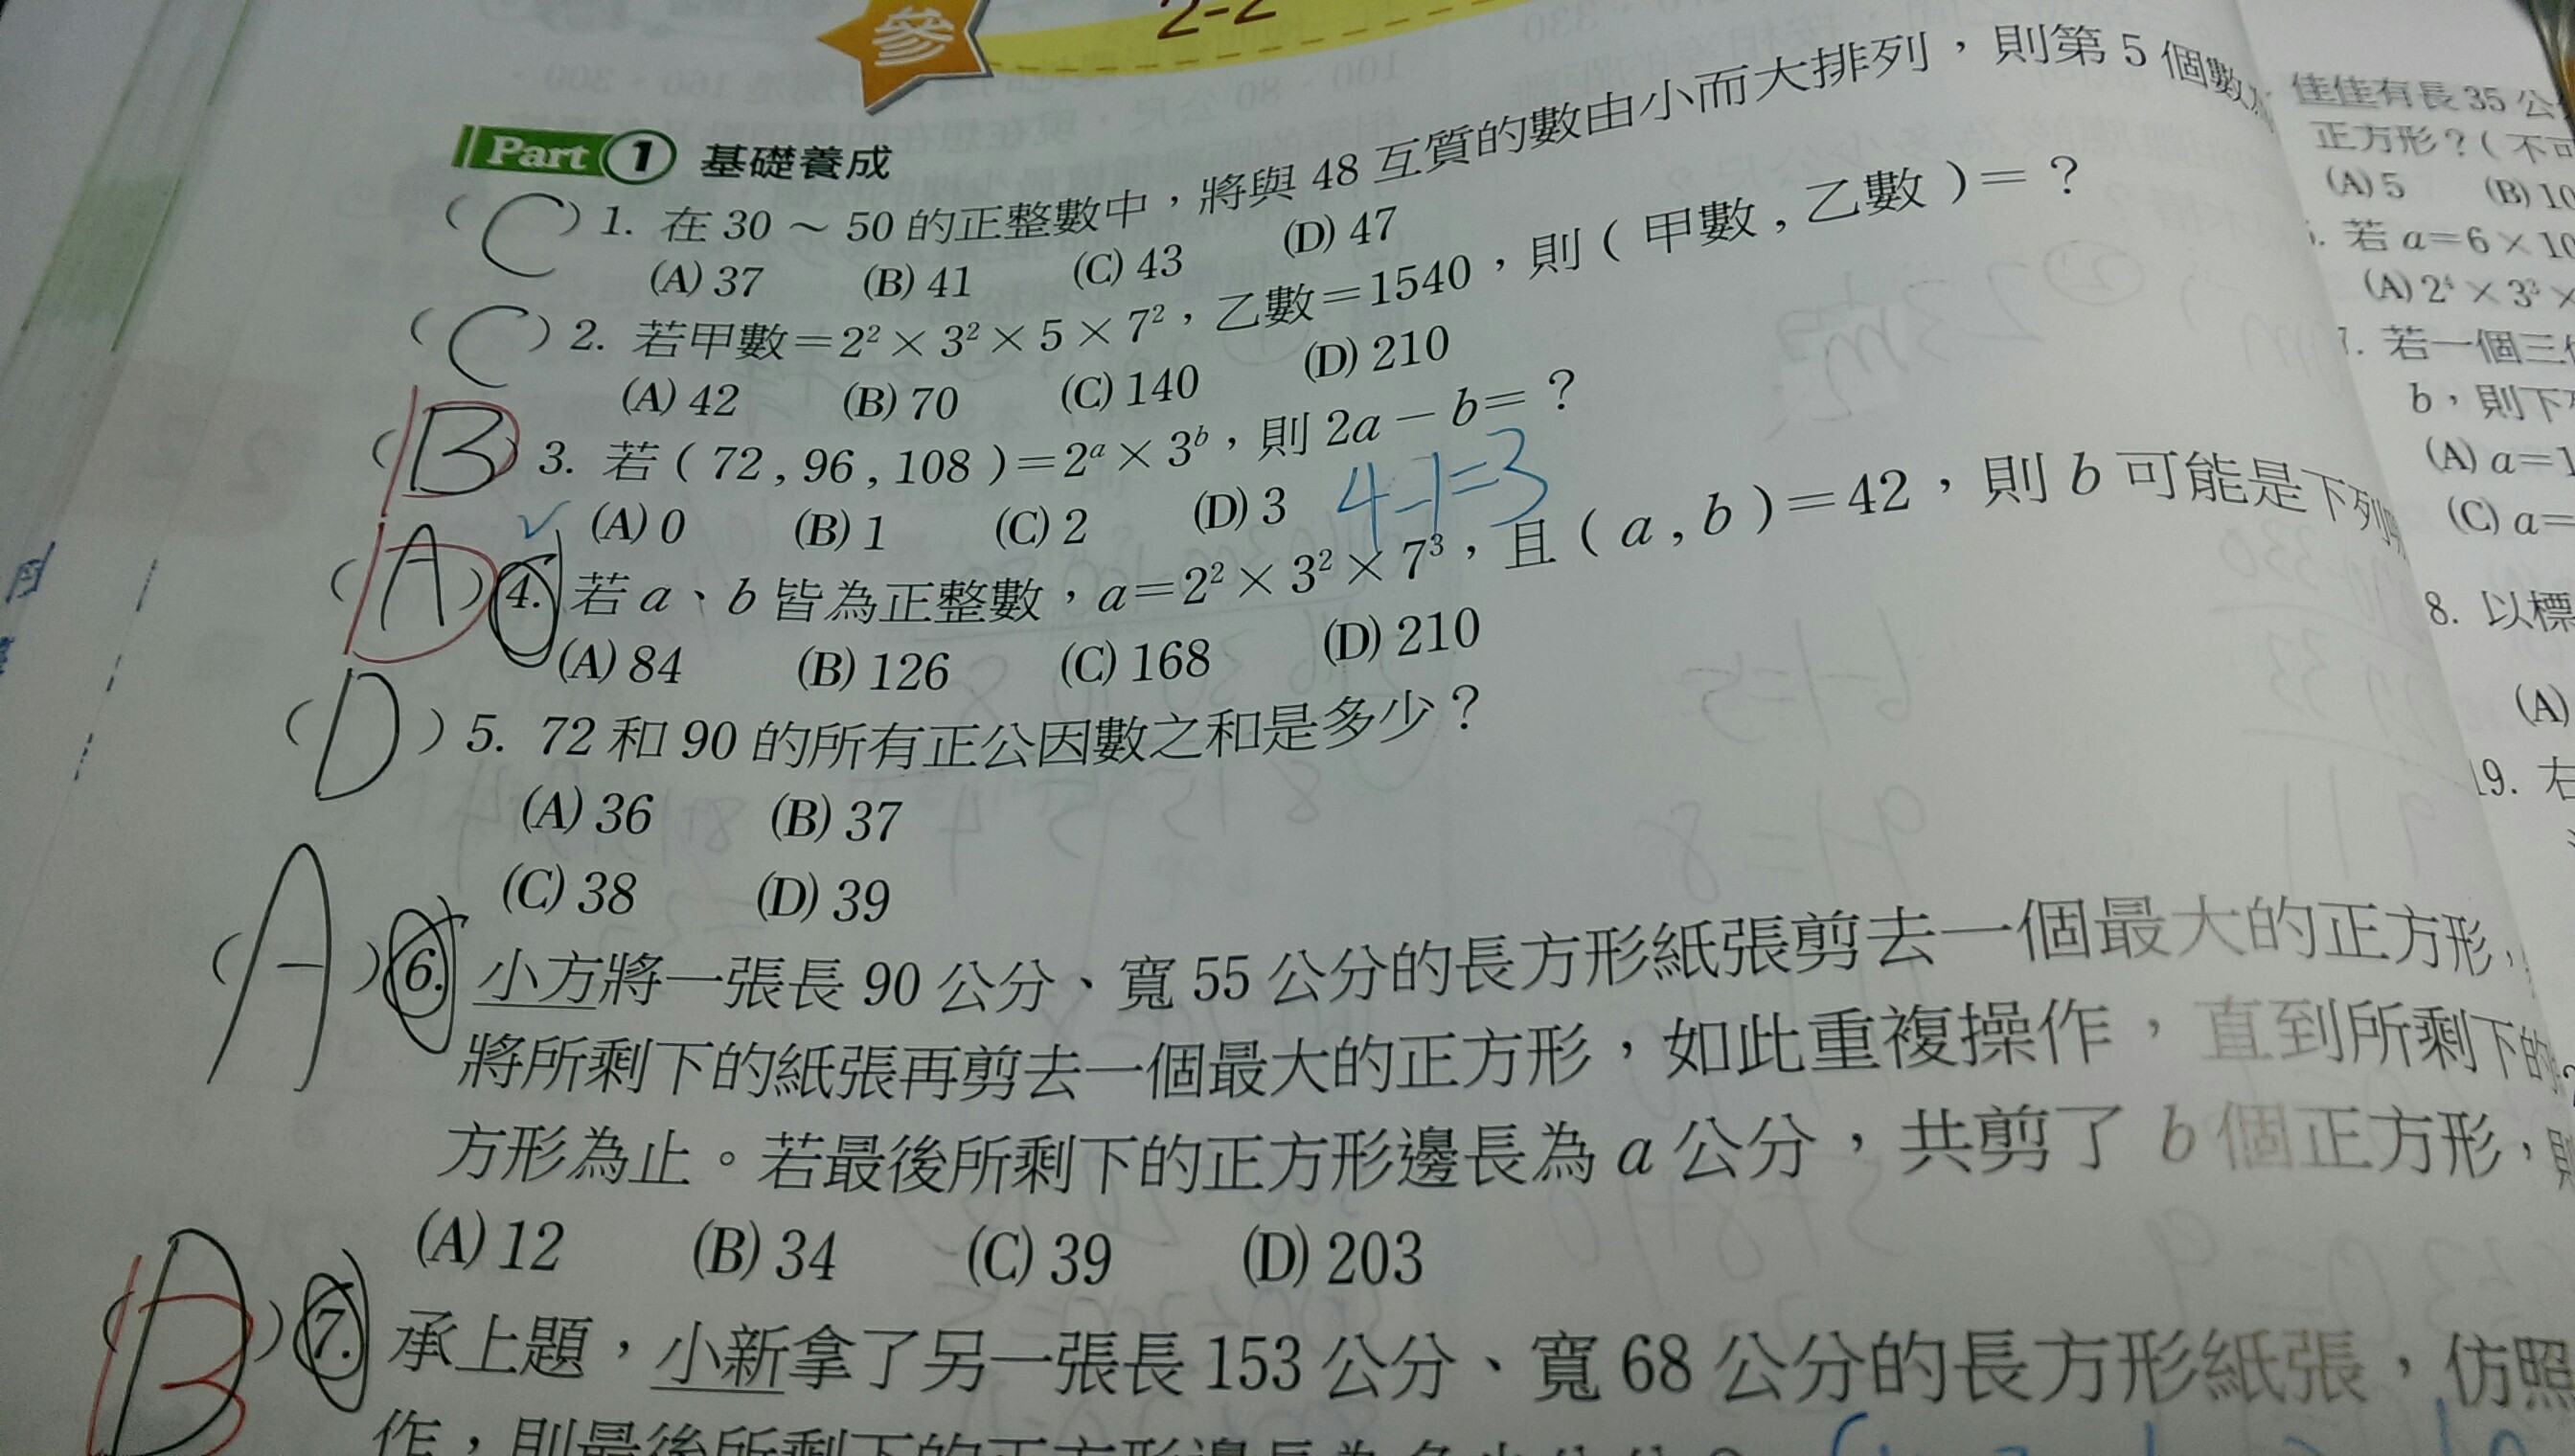 參
2-2
Part 1 基礎養成
( C ) 1. 在 30 ~ 50 的正整數中，將與 48 互質的數由小而大排列，則第 5 個數
(A) 37 (B) 41 (C) 43 (D) 47
( C ) 2. 若甲數＝2² × 3² × 5 × 7²，乙數＝1540，則 ( 甲數 , 乙數 )＝？
(A) 42 (B) 70 (C) 140 (D) 210
( B ) 3. 若 ( 72 , 96 , 108 )＝2ᵃ × 3ᵇ，則 2a − b＝？
4-1=3
(A) 0 (B) 1 (C) 2 (D) 3
( A ) 4. 若 a、b 皆為正整數，a＝2² × 3² × 7³，且 ( a , b )＝42，則 b 可能是下列
(A) 84 (B) 126 (C) 168 (D) 210
( D ) 5. 72 和 90 的所有正公因數之和是多少？
(A) 36 (B) 37
(C) 38 (D) 39
( A ) 6. 小方將一張長 90 公分、寬 55 公分的長方形紙張剪去一個最大的正方形，
將所剩下的紙張再剪去一個最大的正方形，如此重複操作，直到所剩下的
方形為止。若最後所剩下的正方形邊長為 a 公分，共剪了 b 個正方形，則
(A) 12 (B) 34 (C) 39 (D) 203
( B ) 7. 承上題，小新拿了另一張長 153 公分、寬 68 公分的長方形紙張，仿照
作，則最後所剩下的正方形邊長為多少公分？
佳佳有長 35 公
正方形？( 不可
(A) 5 (B) 10
若 a＝6 × 10
(A) 2⁴ × 3³ ×
7. 若一個三位
b，則下
(A) a＝1
(C) a＝
8. 以標
(A)
19. 右